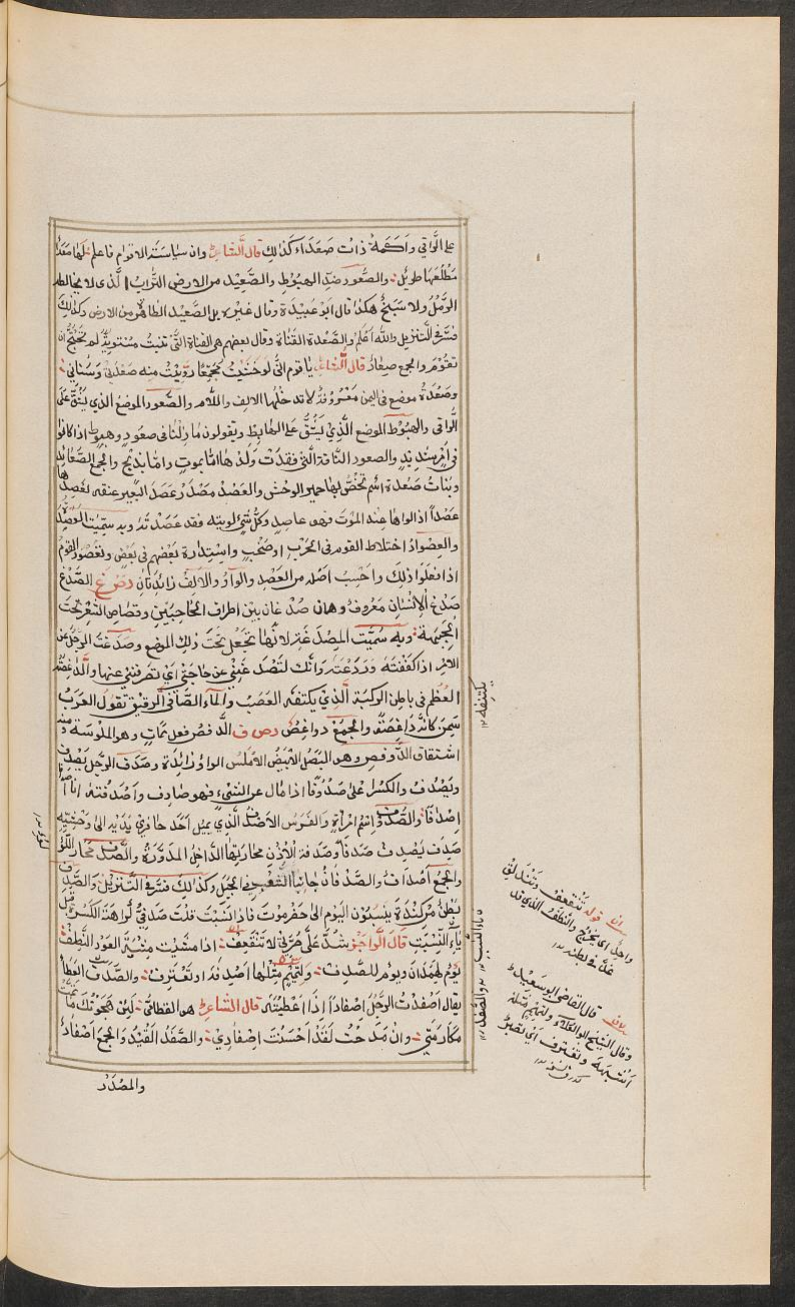 على الراقي واكمة ذات صعداء كذلك قال الشاعر وان سياسة الاقوام فاعلم لها صعداء
مطلعها طويل والصعود ضد الهبوط والصعيد من الارض التراب الذي لا يخالطه
الرمل ولا سبخ هكذا قال ابو عبيدة وقال غيره بل الصعيد الظاهر من الارض وكذلك
فسر في التنزيل والله اعلم والصعدة القناة وقال بعضهم هي القناة التي تنبت مستوية لم تحتج ان
تقوم والجمع صعاد قال الشاعر يا قوم اني لو خشيت مجمعا رويت منه صعدتي وسناني
وصعدة موضع في اليمن معروفة لا تدخلها الالف واللام والصعود الموضع الذي يشق على
الراقي والهبوط الموضع الذي يشق على الهابط ويقولون ما زلنا في صعود وهبوط اذا كانوا
في امر شديد والصعود الناقة التي فقدت ولدها اما بموت واما بذبح والجمع الصعائد
وبنات صعدة اسم تخص بها حمير الوحش والعصد مصدر عصد البعير عنقه يعصدها
عصدا اذا لواها عند الموت فهو عاصد وكل شيء لويته فقد عصدته وبه سميت العصيدة
والعصواد اختلاط القوم في الحرب او صخب واستدارة بعضهم في بعض وتعصود القوم
اذا فعلوا ذلك واحسب اصله من العصد والواو والالف زائدتان د ص غ الصدغ
صدغ الانسان معروف وهما صدغان بين اطراف الحاجبين وقصاص الشعر تحت
الجمجمة وبه سميت المصدغة لانها تجعل تحت ذلك الموضع وصدغت الرجل عن
الامر اذا كففته وردعته وانك لتصدغني عن حاجتي اي تصرفني عنها والداغصة
العظم في باطن الركبة الذي يكتنفه العصب والماء الصافي الرقيق تقول العرب
سمن كانه داغصة والجمع دواغص د ص ف الدفص فعل ممات وهو الملوسة ومنه
اشتقاق الدوفص وهو البصل الابيض الاملس الواو زائدة وصدف الرجل يصدف
ويصدف والكسر على صدوفا اذا مال عن الشيء فهو صادف واصدفته انا اصدفه
اصدافا والصدوف اسم امراة والفرس الاصدف الذي يميل احد حافري يديه الى وحشيه
صدف يصدف صدفا وصدفة الاذن محارتها الداخل المدورة والصدف محار اللؤلؤ
والجمع اصداف والصدفان جانبا الشعب في الجبل وكذلك فسر في التنزيل والصدف
بطن من كندة ينسبون اليوم الى حضرموت فاذا نسبت قلت صدفي كراهة الكسرة قبل
ياء النسبت قال الراجز شد على سرتي لا تنقعف اذا مشيت مشية العود النطف
يوم لهمدان ويوم للصدف ولتميم مثلها او تعترف والصفد العطاء
يقال اصفدت الرجل اصفادا اذا اعطيته قال الشاعر هو القطامي لئن هجوتك ما تمت
مكارمتي وان مدحت لقد احسنت اصفادي والصفد القيد والجمع اصفاد
والمصدر
يكتنفه
ياء النسب
والصفد
قوله تنقعف وتنسلق
واحد اي تخرج والنطف الذي قد
قال القاضي ابو سعيد
وقال الشيخ ابو العلاء ولتميم مثلها